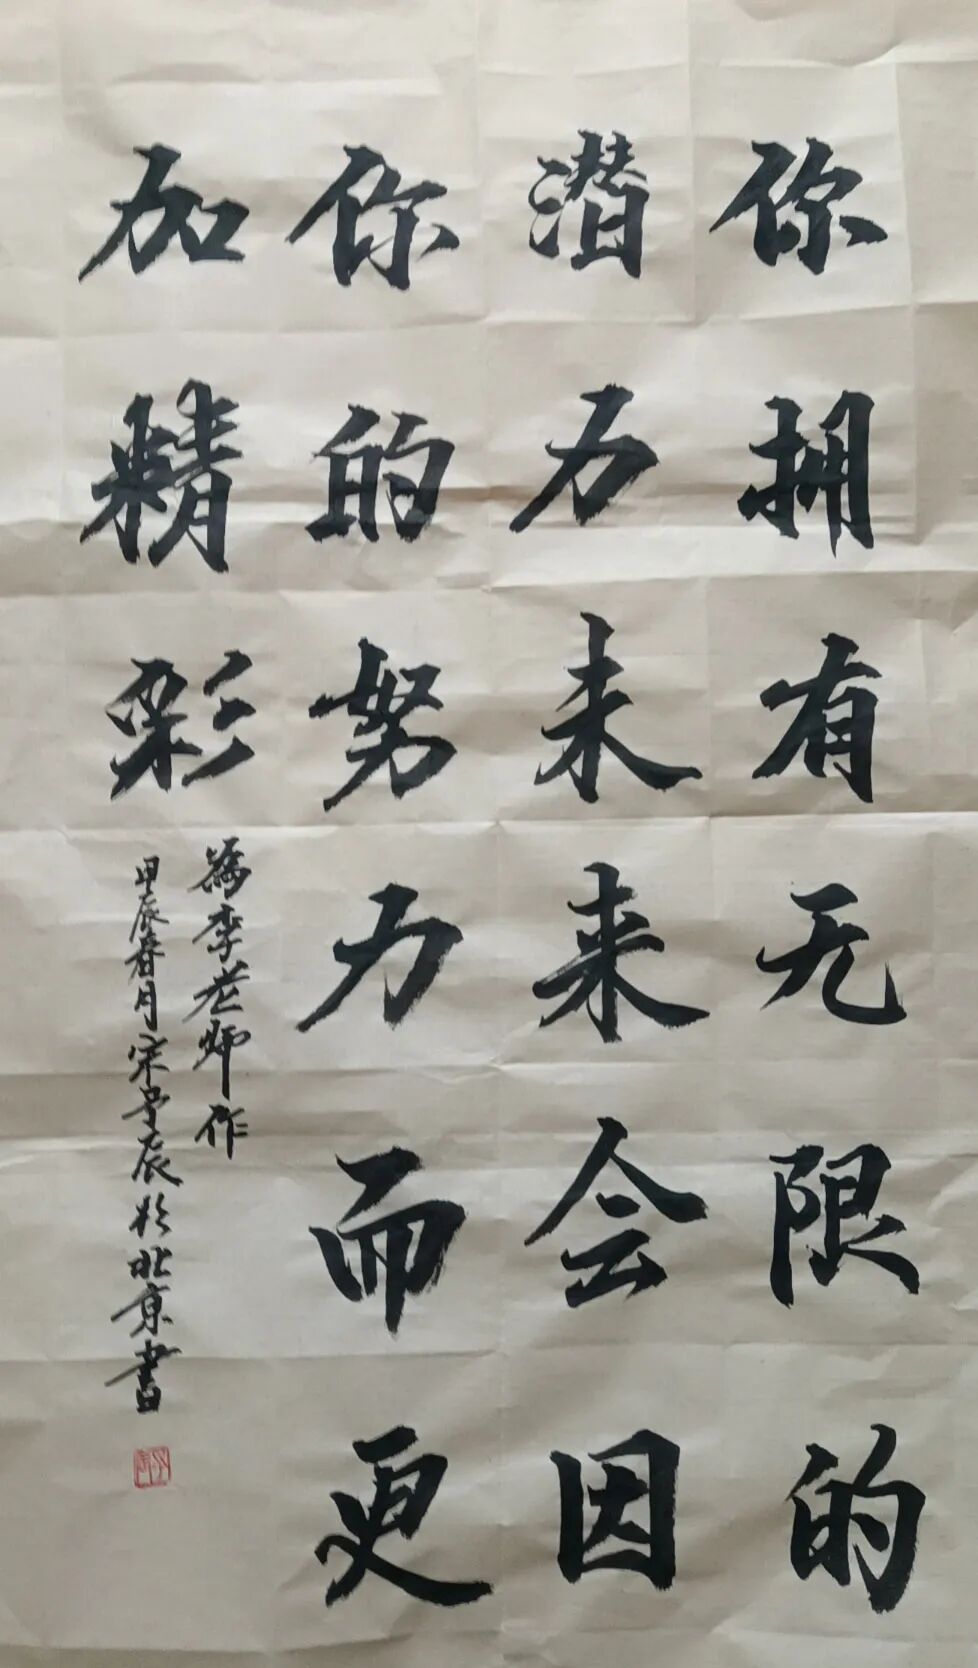 你拥有无限的
潜力未来会因
你的努力而更
加精彩
为李老师作
甲辰春月宋予辰於北京書